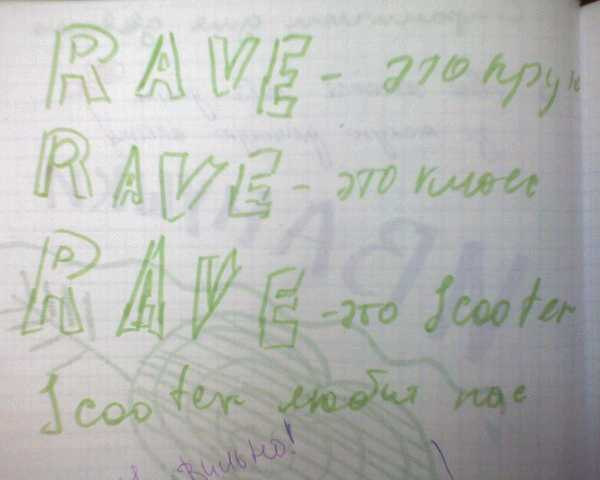 RAVE - это кру
RAVE - это класс
RAVE - это Scooter
Scooter любит нас
вильно!